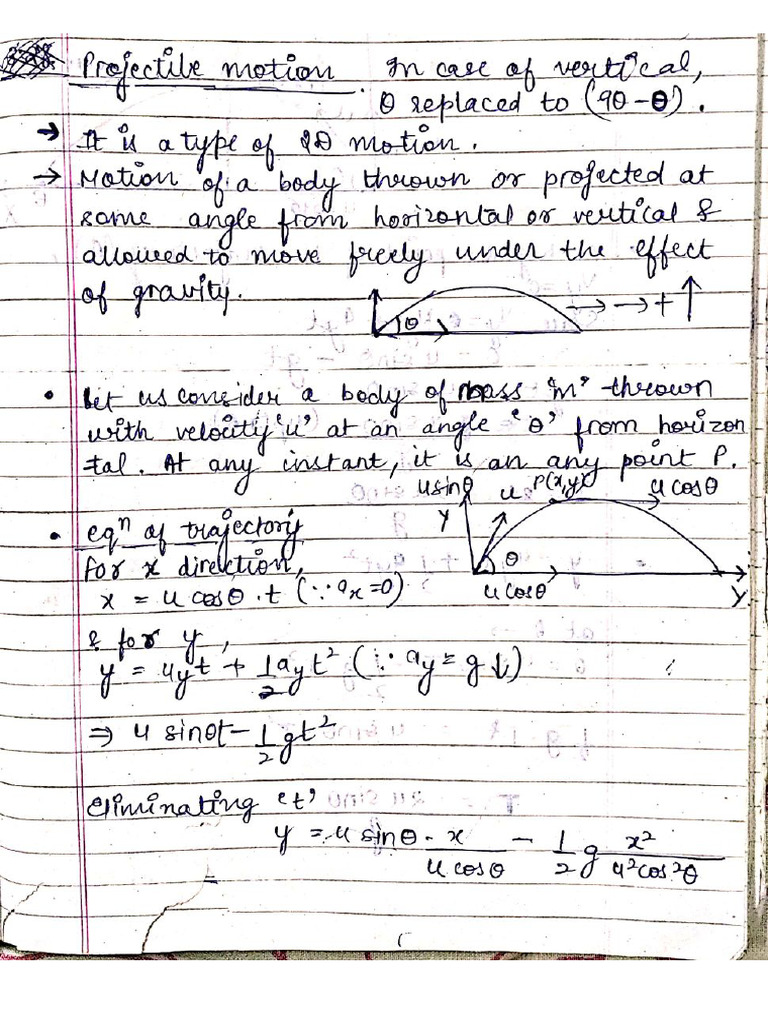 Projectile motion. In case of vertical,
θ replaced to (90-θ).
→ It is a type of 2D motion.
→ Motion of a body thrown or projected at
some angle from horizontal or vertical &
allowed to move freely under the effect
of gravity.
θ → → + ↑
• Let us consider a body of mass 'm' thrown
with velocity 'u' at an angle 'θ' from horizon
tal. At any instant, it is an any point P.
usinθ u P(x,y) u cosθ
• eqⁿ of trajectory
y
for x direction,
θ
x = u cosθ . t (∵ aₓ=0)
u cosθ y
& for y,
y = uyt + 1/2 ayt² (∵ ay = g↓)
⇒ u sinθt - 1/2 gt²
Eliminating 't'
y = u sinθ . x/u cosθ - 1/2 g x²/u²cos²θ